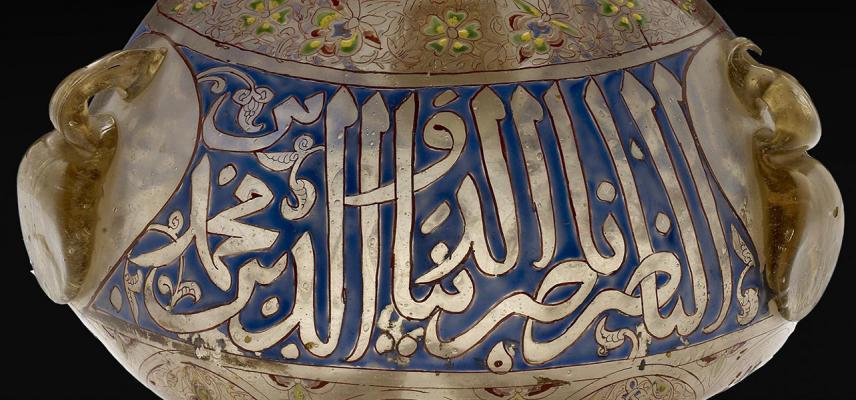 الناصر ناصر الدنيا والدين محمد بن